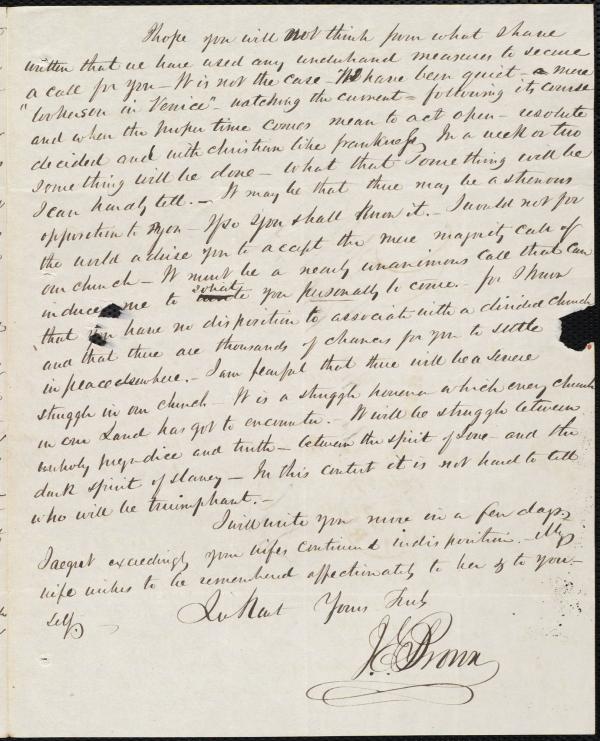 I hope you will not think from what I have
written that we have used any underhand measures to secure
a call for you - It is not the case - We have been quiet - a mere
"looker on in Venice" - watching the current - following its course
and when the proper time comes mean to act open - resolute
decided and with christian like frankness. In a week or two
something will be done - what that something will be
I can hardly tell. - It may be that there may be a strenous
opposition to you - If so you shall know it. - I would not for
the world advise you to accept the mere majority call of
our church - It must be a nearly unanimous call that can
induce me to you personally to come - for I know
that you have no disposition to associate with a divided church
and that there are thousands of chances for you to settle
in peace elsewhere. - I am fearful that there will be a severe
struggle in our church - It is a struggle however which every church
in our Land has got to encounter. It will be struggle between
unholy prejudice and truth - between the spirit of love - and the
dark spirit of slavery - In this contest it is not hard to tell
who will be triumphant. -
I will write you more in a few days,
I regret exceedingly your wifes continued indisposition - My
wife wishes to be remembered affectionately to her & to your-
self. - In haste Yours Truly
J. E. Brown